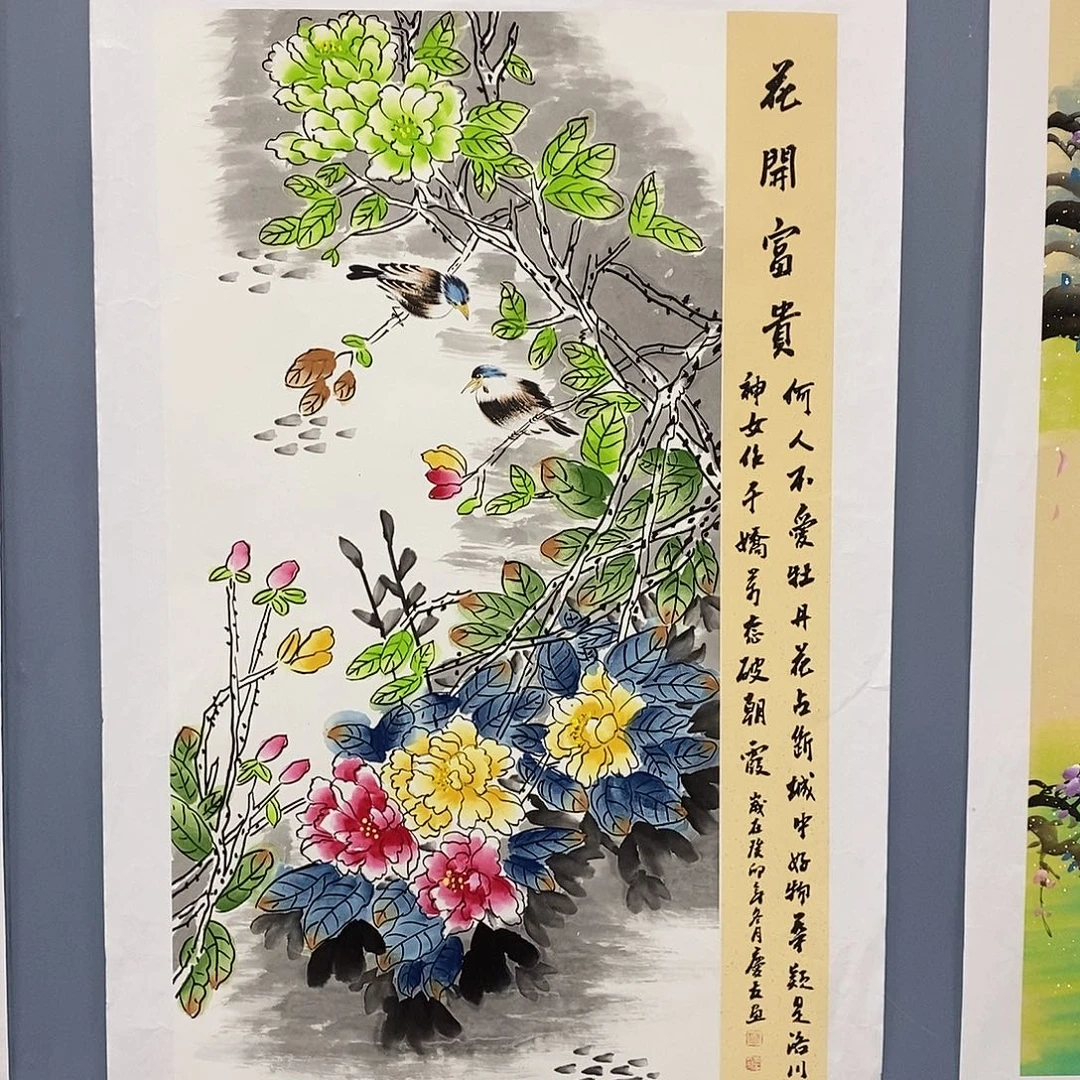 花開富貴
何人不愛牡丹花占断城中好物華疑是洛川
神女作千嬌萬态破朝霞
歲在癸卯年冬月慶友画